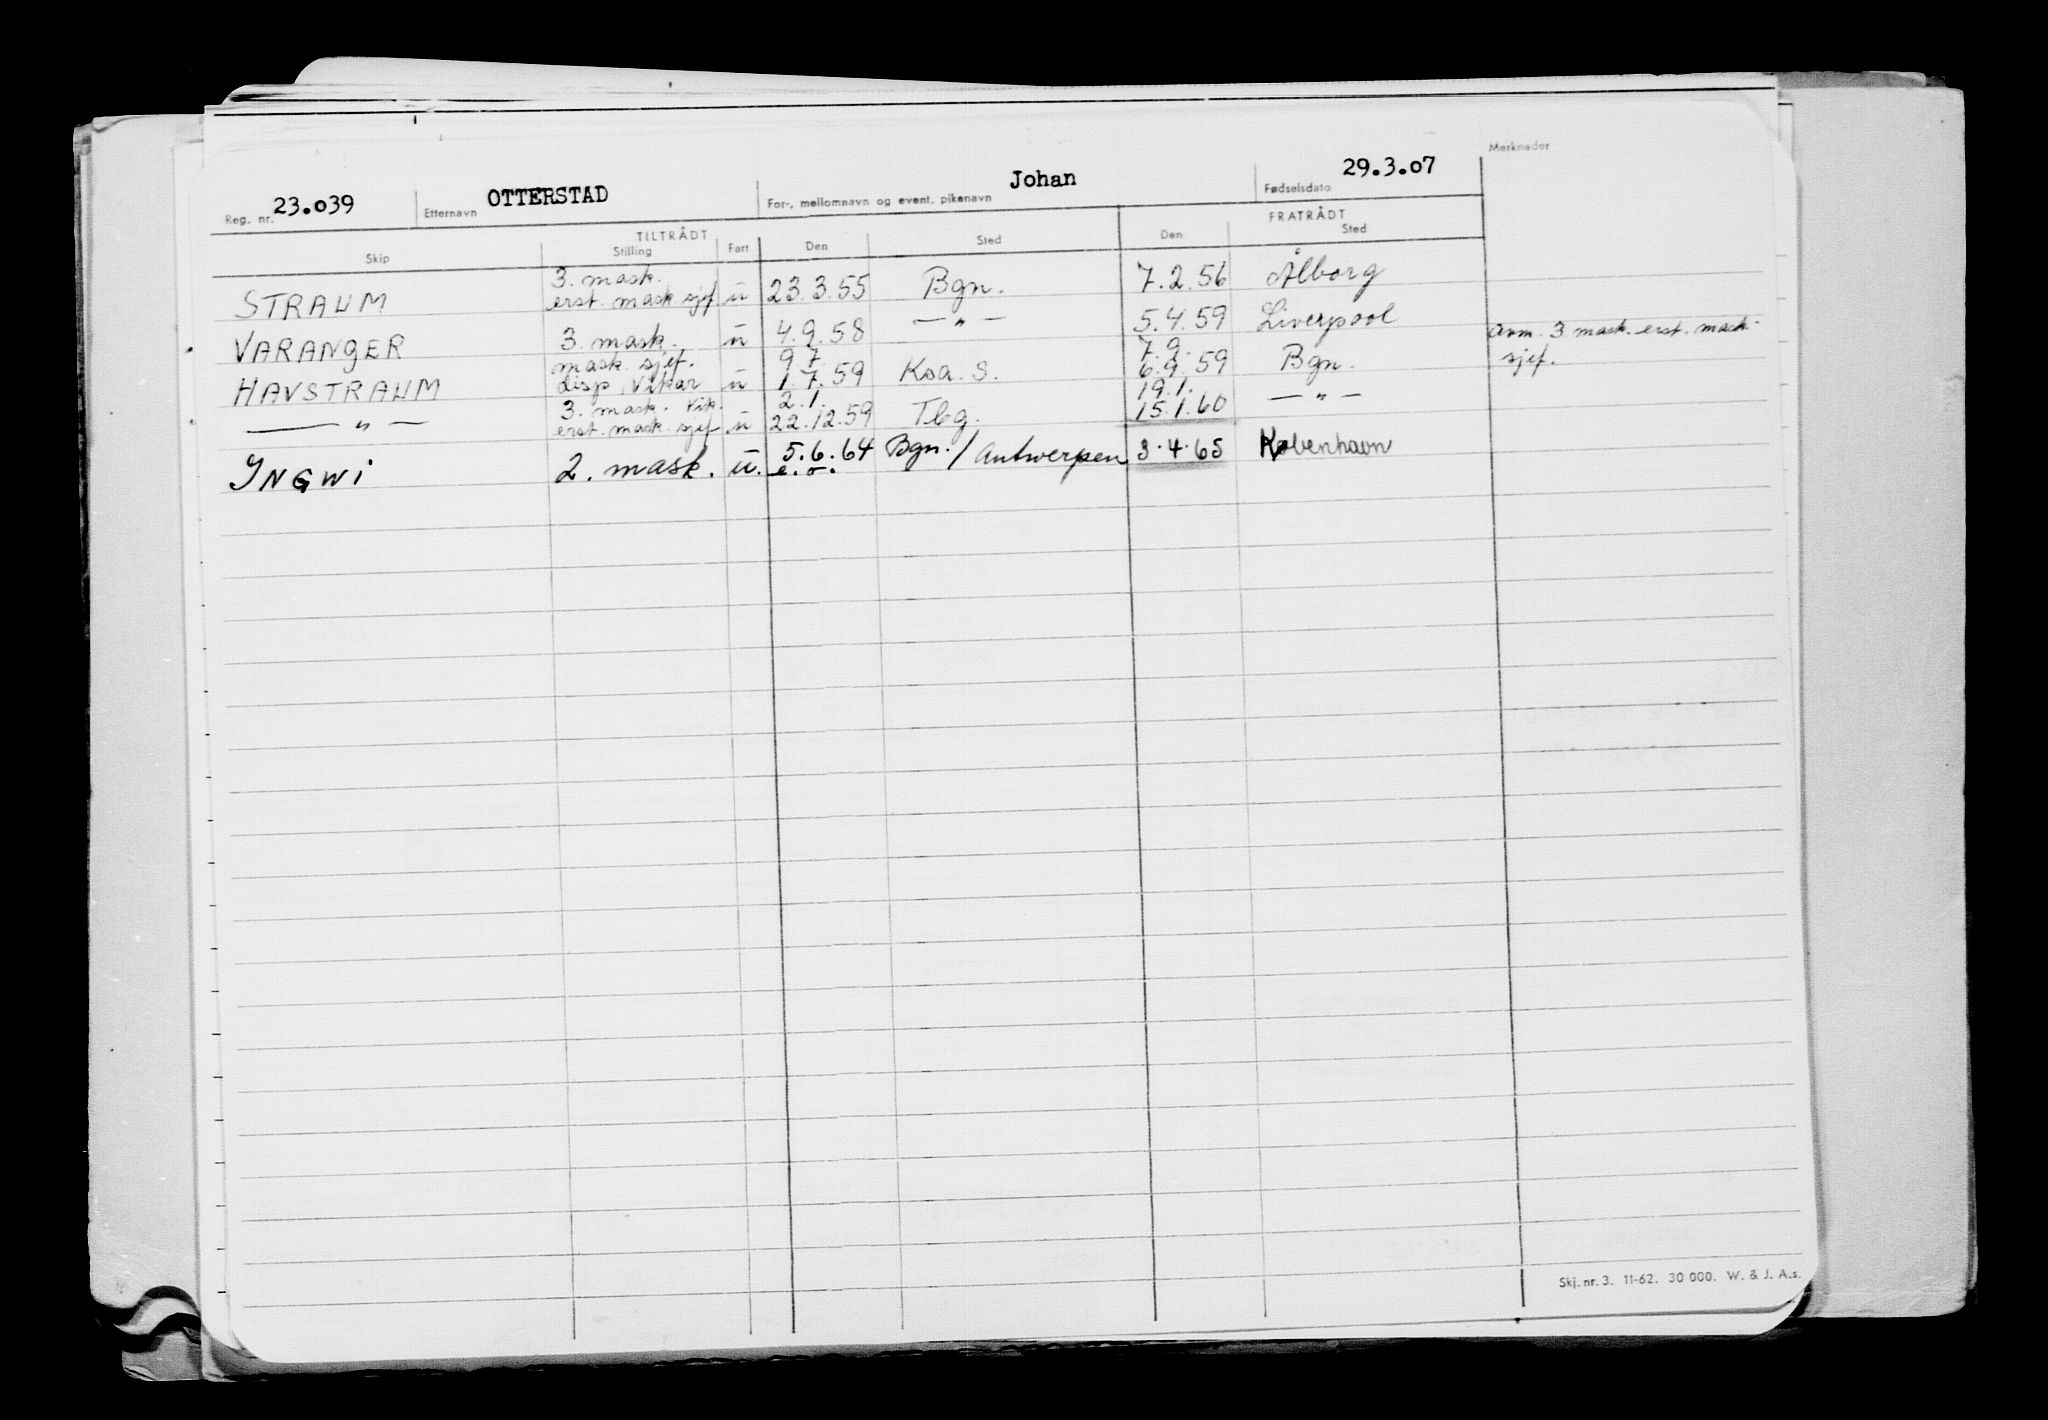 Merknader
Reg. nr. 23.039 Etternavn OTTERSTAD For-, mellomnavn og event. pikenavn Johan Fødselsdato 29.3.07
TILTRÅDT FRATRÅDT
Skip Stilling Fart Den Sted Den Sted
3. mask.
STRAUM erst. mask. sjef ū 23.3.55 Bgn. 7.2.56 Ålborg
VARANGER 3. mask. ū 4.9.58 — " — 5.4.59 Liverpool Avm. 3 mask. erst. mask.
sjef.
mask. sjef. 9.7. 7.9.
HAVSTRAUM disp. Vikar ū 1.7.59 Koa. S. 6.9.59 Bgn.
3. mask. Vik. 2.1. 19.1.
— " — erst. mask. sjef ū 22.12.59 Tbg. 15.1.60 — " —
INGWI 2. mask. ū. 5.6.64 Bgn./Antwerpen 3.4.65 København
e.o.
Skj. nr. 3. 11-62. 30 000. W. & J. A.s.